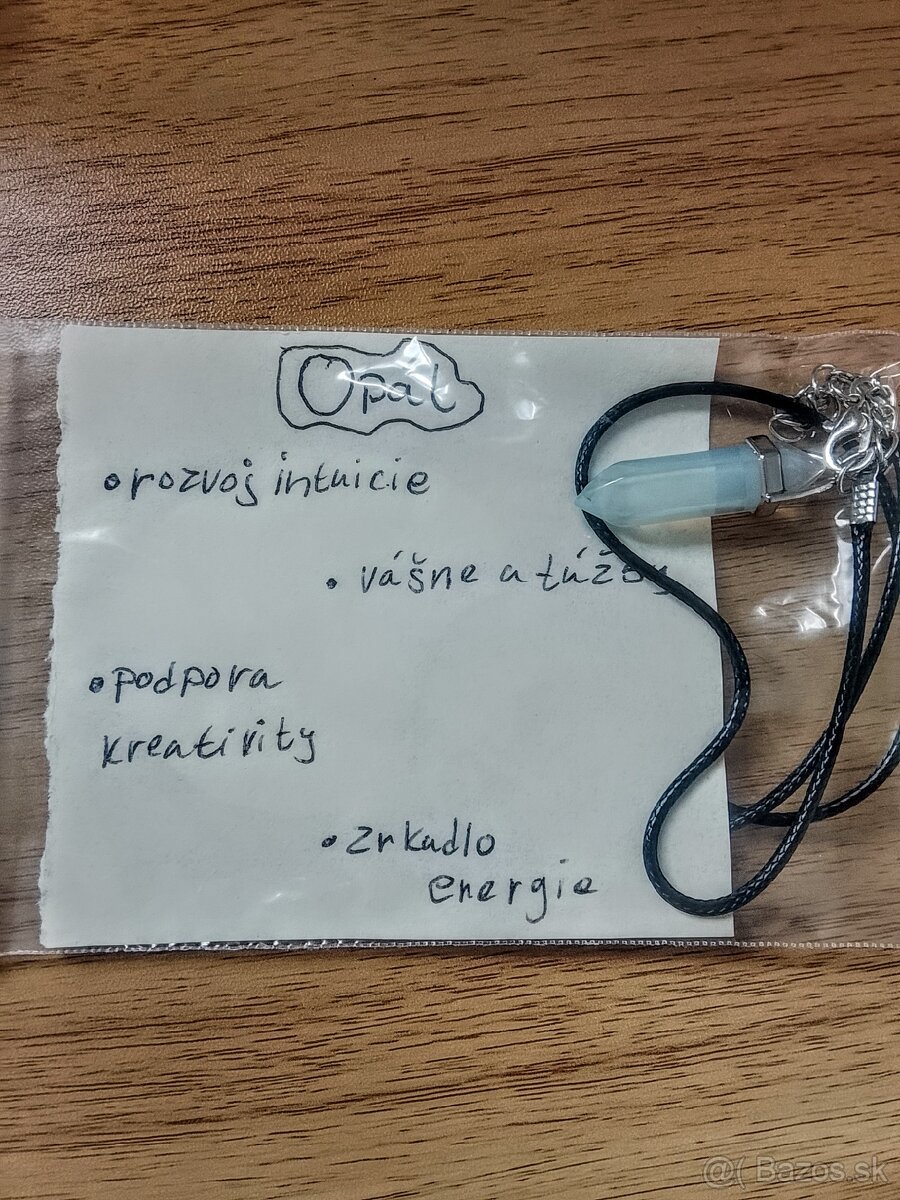 Opál
• rozvoj intuicie
• vášne a túžby
• podpora
kreativity
• zrkadlo
energie
@( Bazos.sk